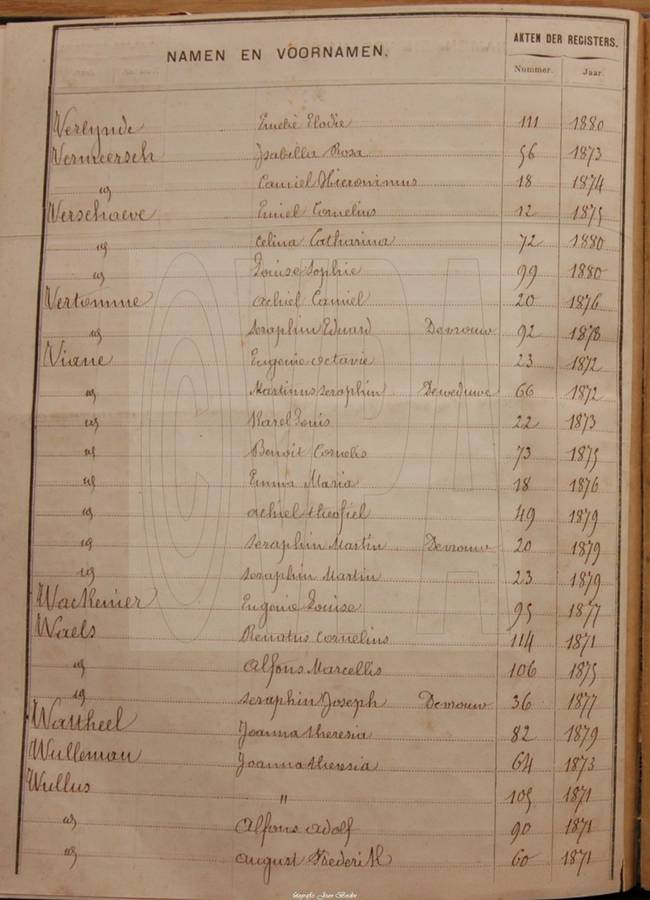 NAMEN EN VOORNAMEN. AKTEN DER REGISTERS.
Nummer. Jaar.
Verlynde Emelie Elodie 111 1880
Vermeersch Isabella Rosa 56 1873
id Camiel Hieronimus 18 1874
Verschaeve Emiel Cornelius 12 1875
id Celina Catharina 72 1880
id Louise Sophie 99 1880
Vertomme Achiel Camiel 20 1876
id Seraphin Eduard Devrouw 92 1878
Viane Eugenie Octavie 23 1872
id Martinus Seraphin Deweduwe 66 1872
id Karel Louis 22 1873
id Benoit Cornelis 73 1875
id Emma Maria 18 1876
id Achiel Theofiel 49 1879
id Seraphin Martin Devrouw 20 1879
id Seraphin Martin 23 1879
Wackenier Eugenie Louise 95 1877
Waels Renatus Cornelius 114 1871
id Alfons Marcellis 106 1875
id Seraphin Joseph Devrouw 36 1877
Wattheel Joanna Theresia 82 1879
Wulleman Joanna Theresia 64 1873
Wullus " 105 1871
id Alfons Adolf 90 1871
id August Frederik 60 1871
CVPA